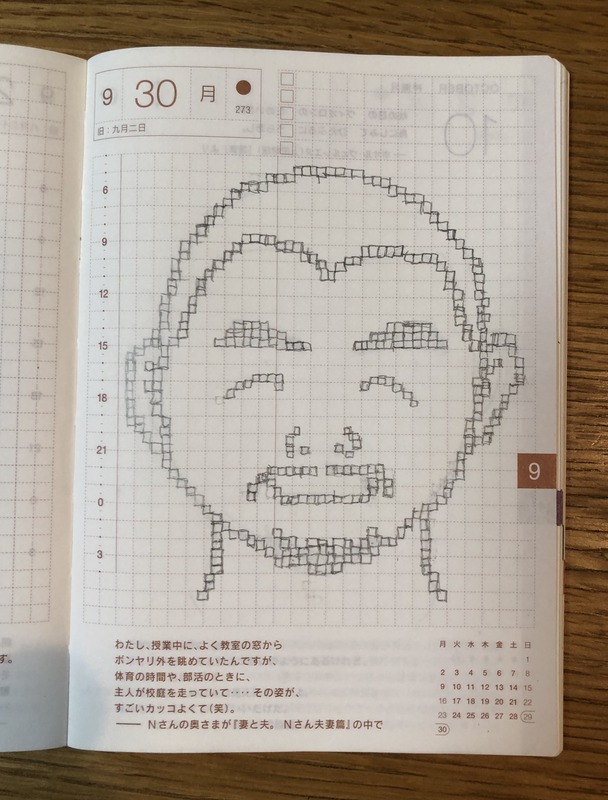 9 30 月
273
旧：九月二日
OCTOBER
10
6
9
12
15
18
21
0
3
9
わたし、授業中に、よく教室の窓から
ボンヤリ外を眺めていたんですが、
体育の時間や、部活のときに、
主人が校庭を走っていて‥‥その姿が、
すごいカッコよくて（笑）。
—— Nさんの奥さまが『妻と夫。 Nさん夫妻篇』の中で
す。
月 火 水 木 金 土 日
1
2 3 4 5 6 7 8
9 10 11 12 13 14 15
16 17 18 19 20 21 22
23 24 25 26 27 28 29
30